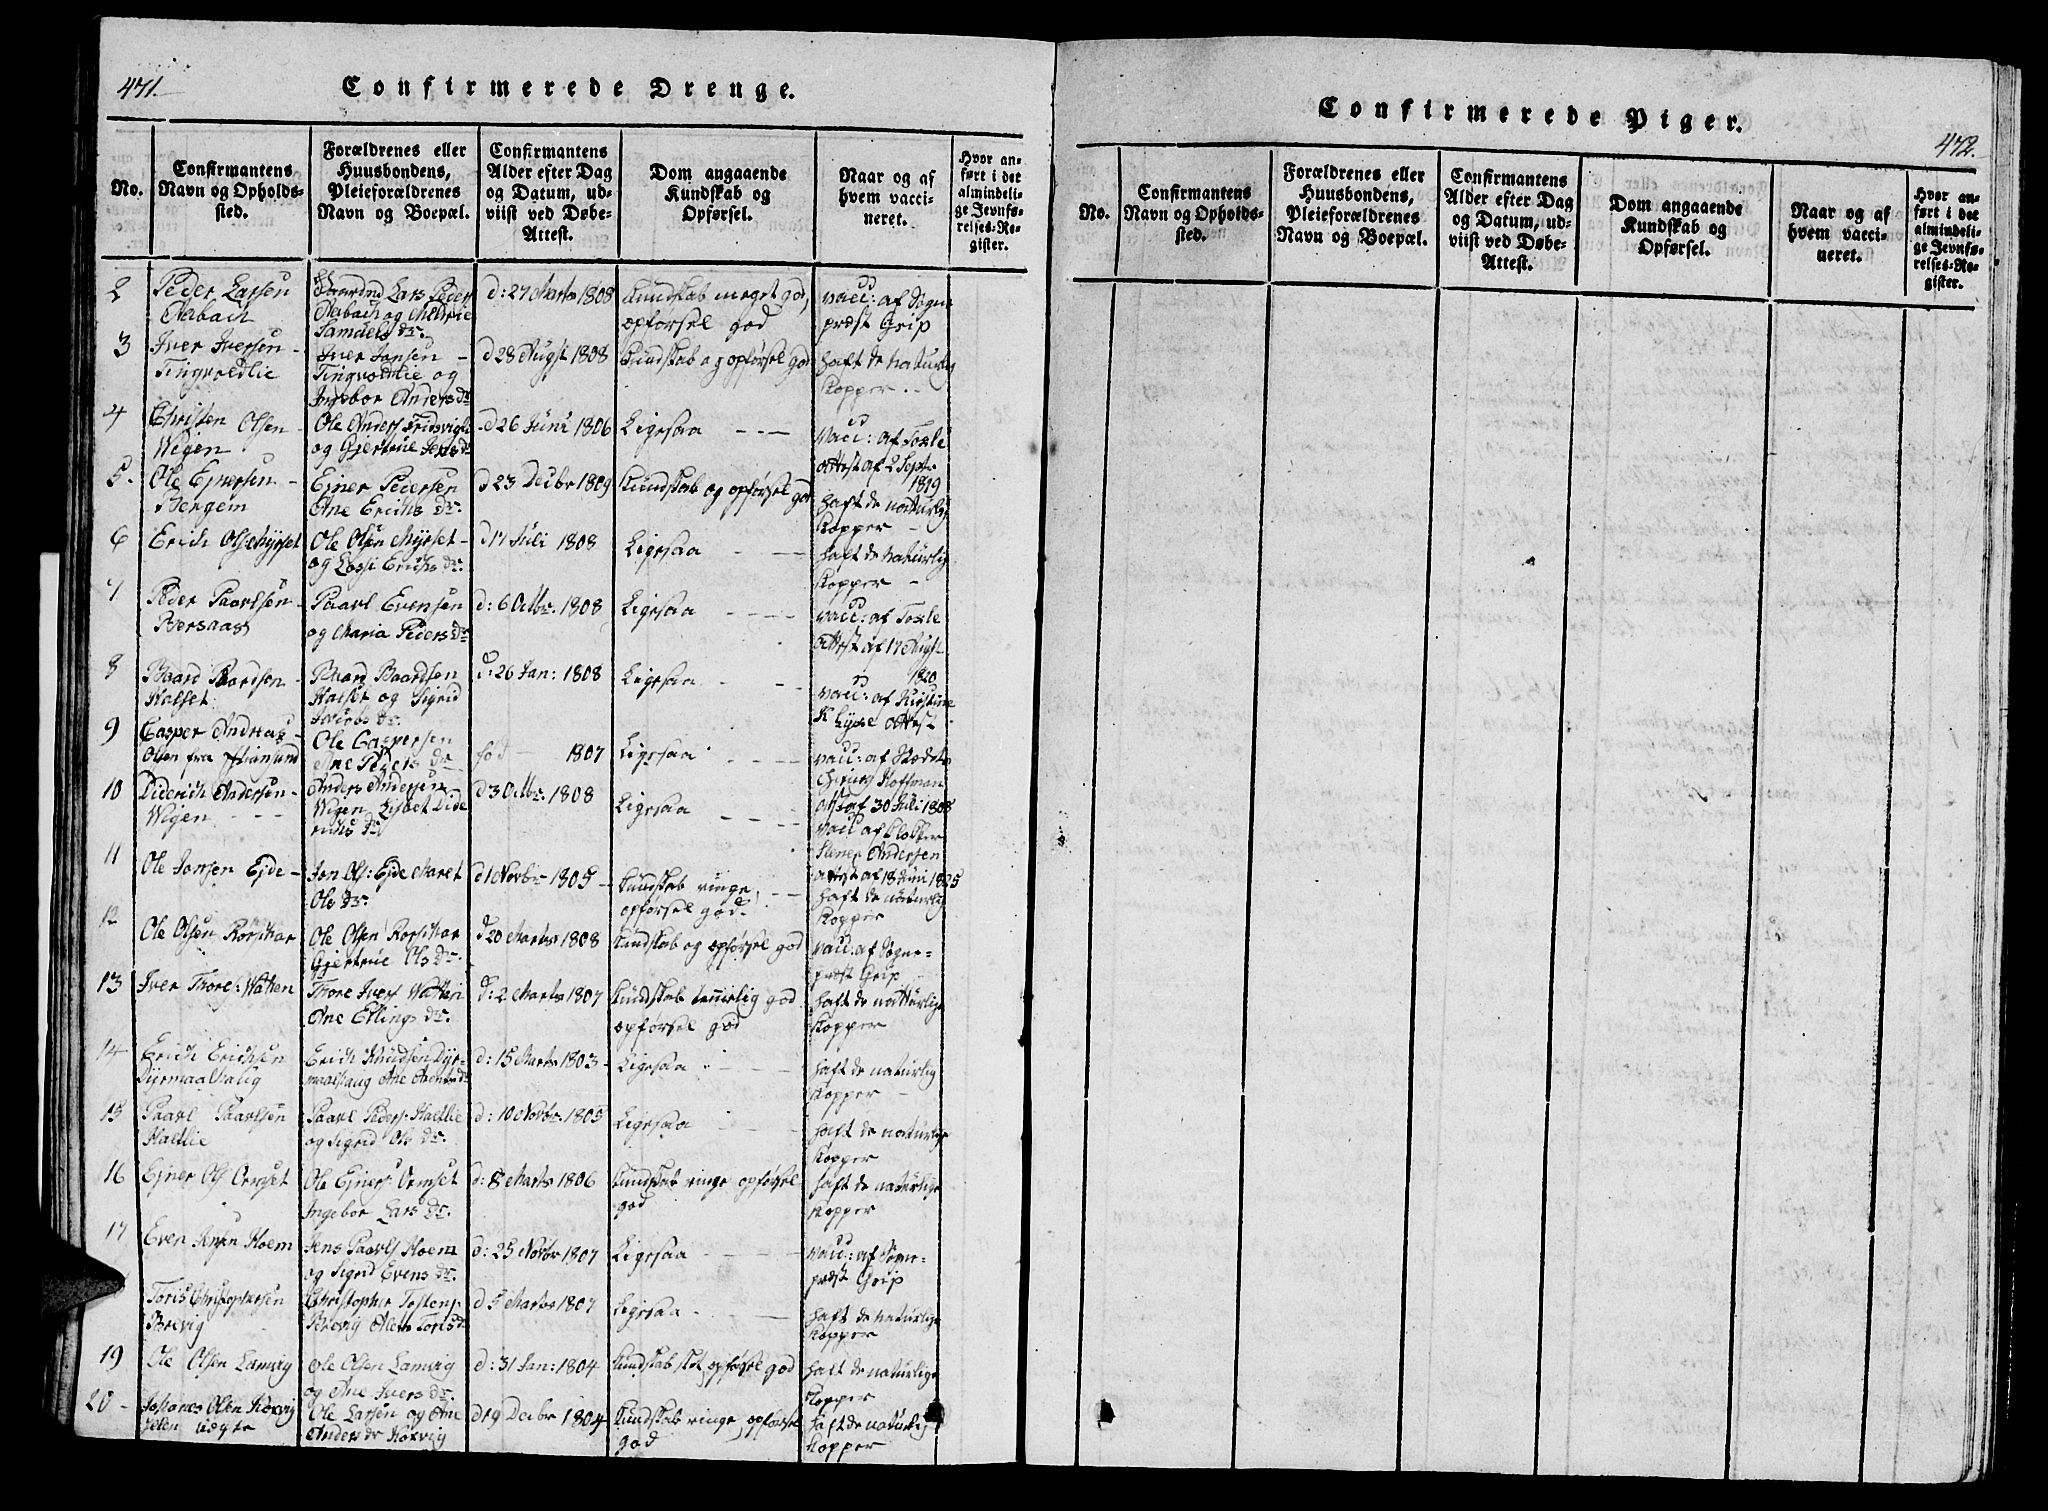 471.
Confirmerede Drenge.
No.
Confirmantens
Navn og Opholds-
sted.
Forældrenes eller
Huusbondens,
Pleieforældrenes
Navn og Boepæl.
Confirmantens
Alder efter Dag
og Datum, ud-
viist ved Døbe-
Attest.
Dom angaaende
Kundskab og
Opførsel.
Naar og af
hvem vacci-
neret.
Hvor an-
ført i det
almindeli-
ge Jevnfø-
relses-Re-
gister.
2
Peder Larsen
Aabach
Lars Peders
Aabach og Marie
Samuels dr.
d: 27 Marts 1808
Kundskab meget god,
opførsel god
vacc: af Sogne
præst Grip
3
Iver Iversen -
Tingvoldlie
Iver Jansen -
Tingvoldlie og
Ingebor Anders dr
d 28 Augst 1808
Kundskab og opførsel god
haft de naturlig
Kopper
4
Christen Olsen
Wigen
Ole Anders
og Gjertrue Jens dr
d 26 Juni 1806
Ligesaa - - -
vacc: af Toxle
attest af 2 Septr
1819
5.
Ole Ejnersen -
Bergem
Ejner Pedersen
Ane Erichs dr.
d 23 Decbr 1809
Kundskab og opførsel god
haft de naturlig
Kopper -
6
Erich Ols Myrset
Ole Olsen Myrset -
og Lossi Erichs dr.
d 17 Juli 1808
Ligesaa - - -
haft de naturlig
Kopper -
7
Peder Paarlsen -
Bersaas
Paarl Evensen
og Maria Peders dr
d: 6 Octbr. 1808
Ligesaa - - - -
vacc: af Toxle
attest af 17 Augst
1820
8
Baard Baardsen -
Halset
Baard Baardsen
Halset og Sigrid
Jacobs dr.
d: 26 Jan: 1808
Ligesaa - - -
vacc: af Kirstine
K Lyxe attest
9
Casper Andreas -
Olsen fra Christiansund
Ole Caspersen
Ane Peders dr
fød - 1807
Ligesaa - - - -
vacc: af
Hoffman
attst af 30 Juli 1808
10
Diderich Andersen -
Wigen - - -
Anders Andersen
Wigen Lisbet Dide
richs dr
d 3 Octbr. 1808
Ligesaa - - - -
vacc af Klokker
Stener Andersen
attest af 18 Juni 1825
11
Ole Jonsen Ejde -
Jon Ols: Ejde Maret
Ols dr.
d 1 Novbr 1805 -
Kundskab ringe, - -
opførsel god.
haft de naturlig
Kopper
12
Ole Olsen Korsvkar
Ole Olsen Korsvkar
Gjertrue Ols dr.
d 20 Marts 1808
Kundskab og opførsel god
vacc: af Sogne-
præst Grip -
13
Iver Thore: Watten
Thore Ivers Watten
Ane Ellings dr.
d: 2 Marts 1807
Kundskab temelig god
opførsel god
haft de natturlige
Kopper
14
Erich Erichsen
Dyrmaalhaug
Erich Knudsen Dyr-
maalhaug Ane Arents dr
d: 15 Marts 1803 -
Ligesaa - - -
haft de naturlig
Kopper -
15
Paarl Paarlsen
Haltlie
Paarl Peders: Haltlie
og Sigrid Ols dr.
d: 10 Novbr. 1805
Ligesaa - -
haft de naturlige
Kopper
16
Ejner Ols Ormset
Ole Ejners: Ormset
Ingebor Lars dr.
d: 8 Marts 1806
Kundskab ringe opførsel
god
haft de naturlige
Kopper
17
Even Jensen Hoem
Jens Paarls Hoem
og Sigrid Evens dr.
d: 25 Novbr 1807
Ligesaa - - -
vacc: af Sogne-
præst Grip
Toris Christophersen
Brevig
Christopher Tostens
Brevig Alem Toris dr
d 5 Marts 1807
Ligesaa - - -
haft de naturlige
Kopper
19
Ole Olsen Lamvig
Ole Olsen Lamvig
og Ane Ivers dr.
d: 31 Jan: 1804
Kundskab slet, opførsel god
haft de naturlige
Kopper
20 -
Johanes Olsen Koxvig
Ole Larsen og Ane
Anders dr Koxvig
d 19 Decbr 1804
Kundskab ringe, opførsel
god
haft de naturlig
Kopper
Confirmerede Piger.
472.
No.
Confirmantens
Navn og Opholds-
sted.
Forældrenes eller
Huusbondens,
Pleieforældrenes
Navn og Boepæl.
Confirmantens
Alder efter Dag
og Datum, ud-
viist ved Døbe-
Attest.
Dom angaaende
Kundskab og
Opførsel.
Naar og af
hvem vacci-
neret.
Hvor an-
ført i det
almindeli-
ge Jevnfø-
relses-Re-
gister.